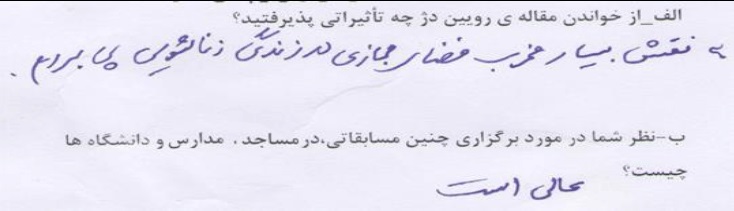 الف_از خواندن مقاله ی رویین دژ چه تأثیراتی پذیرفتید؟
به نقش بسیار مخرب فضای مجازی در زندگی زناشویی پی بردم.
ب-نظر شما در مورد برگزاری چنین مسابقاتی،درمساجد، مدارس و دانشگاه ها
چیست؟
عالی است